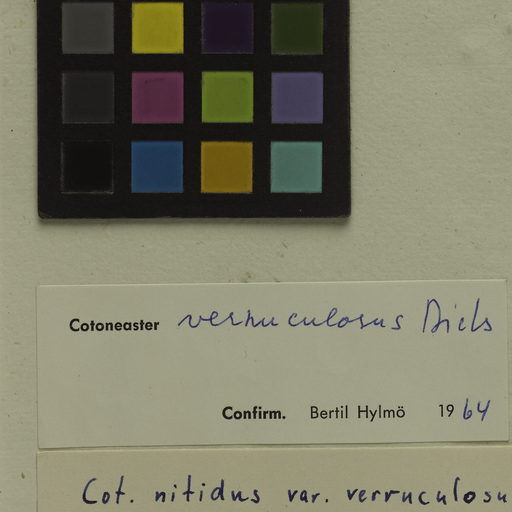 Cotoneaster verruculosus Diels
Confirm. Bertil Hylmö 1964
Cot. nitidus var. verruculosu